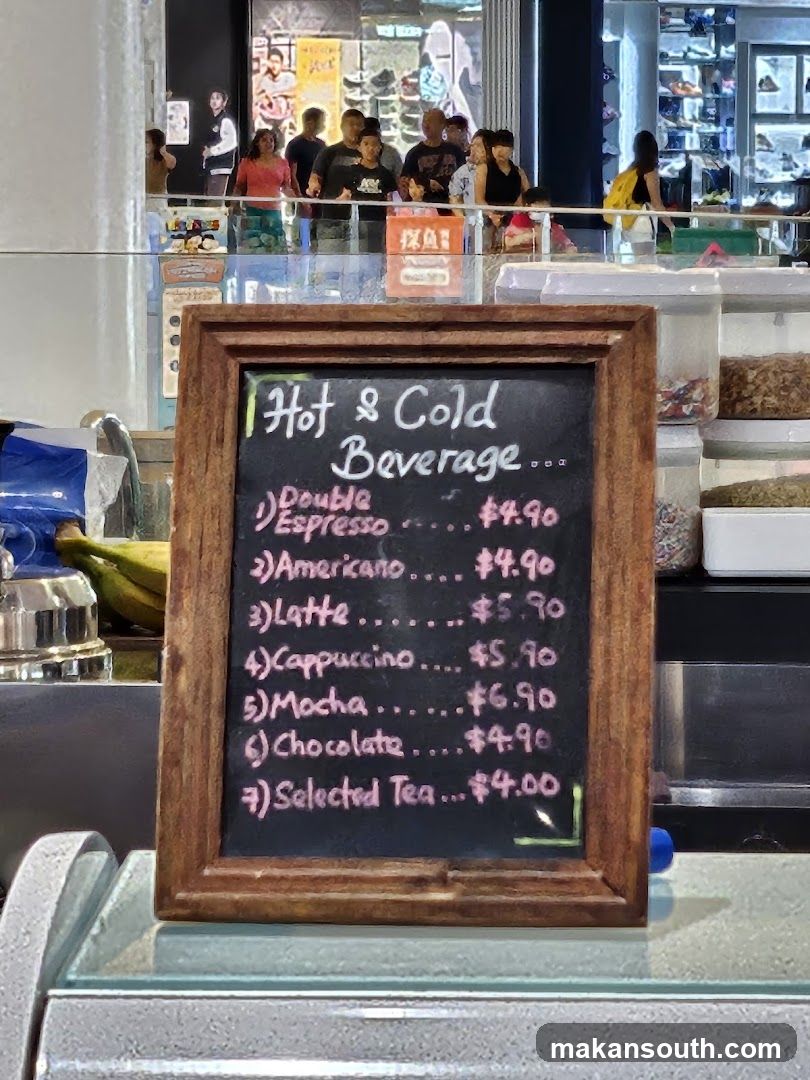 探鱼
Hot & Cold
Beverage...
1) Double
Espresso ..... $4.90
2) Americano.... $4.90
3) Latte ....... $5.90
4) Cappuccino.... $5.90
5) Mocha ...... $6.90
6) Chocolate .... $4.90
7) Selected Tea ... $4.00
makansouth.com